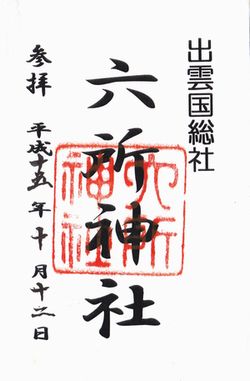 出雲国総社
六所神社
参拝 平成十五年十月十二日
六所
神社